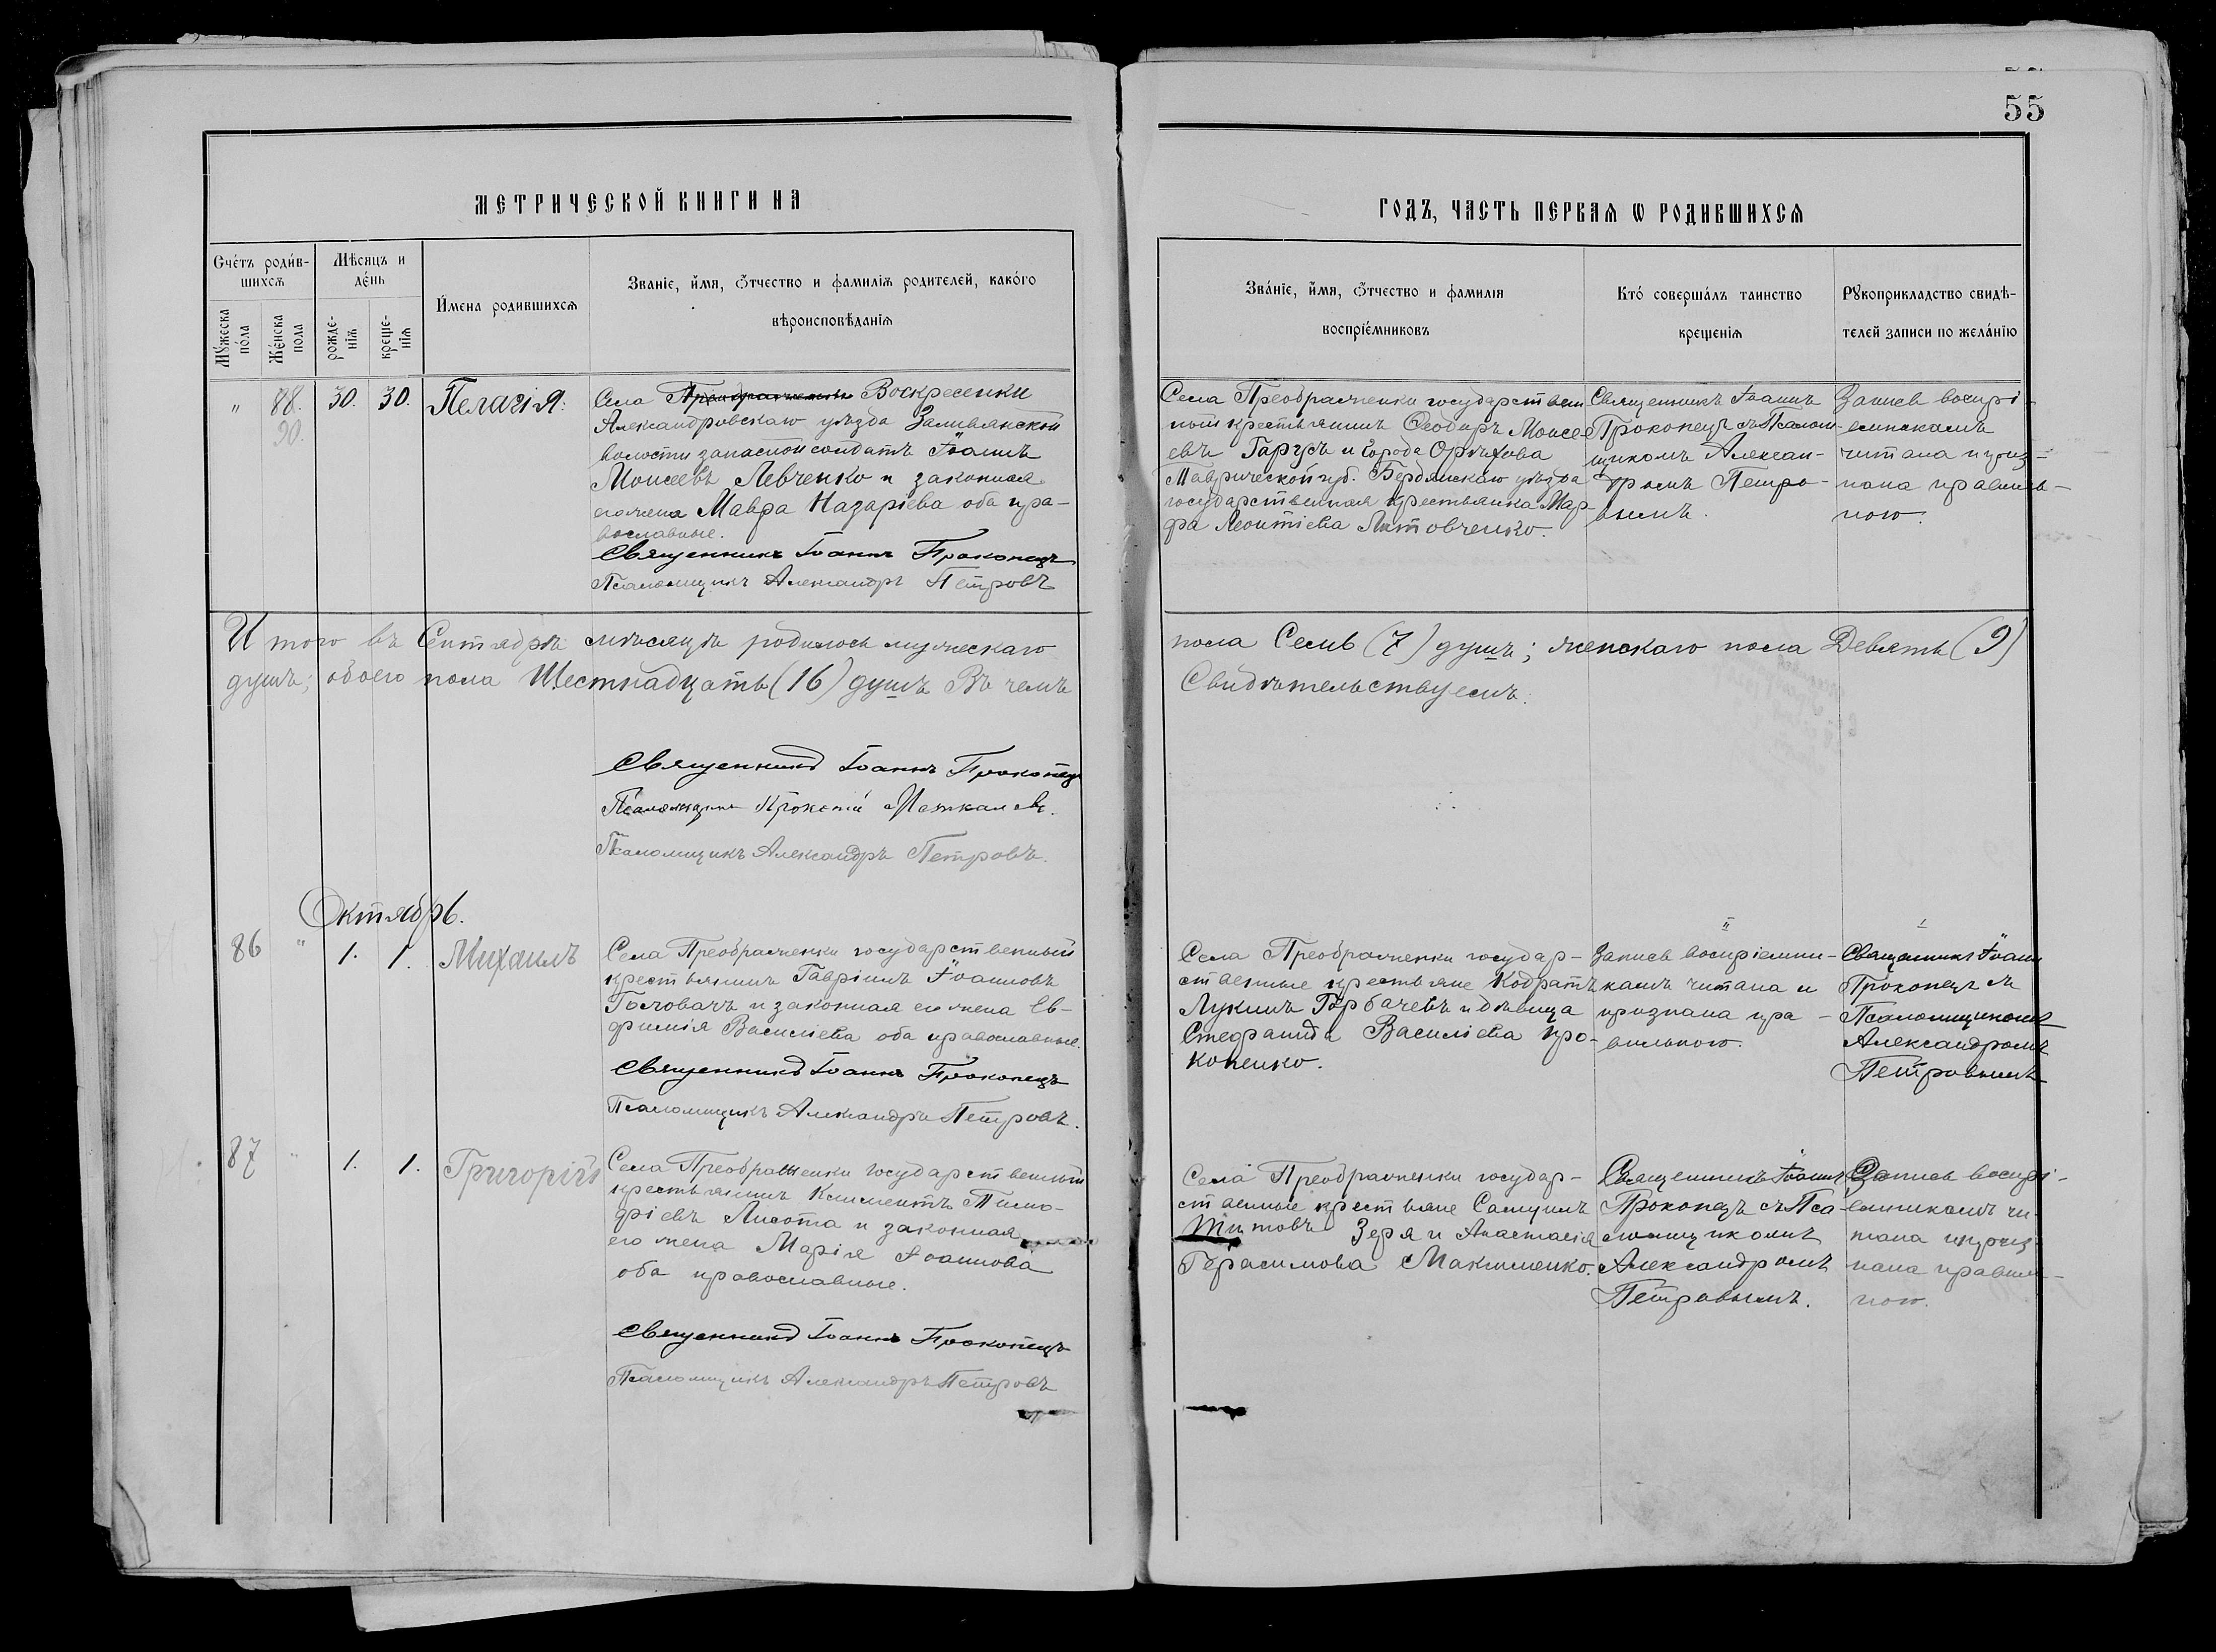 55
МЕТРИЧЕСКОЙ КНИГИ НА
ГОДЪ, ЧАСТЬ ПЕРВАѦ Ѡ РОДИВШИХСѦ
Счéтъ роди́в-
шихсѧ
Мѣсяцъ и
дéнь
Мꙋ́жеска
по́ла
Же́нска
пола
рожде-
нїѧ
креще-
нїѧ
И́мена родившихсѧ
Званїе, и́мя, ѻ́тчество и фамилїѧ родителей, како́го
вѣроисповѣданїѧ
Зва́нїе, и́мя, ѻ́тчество и фамилїя
воспрїе́мниковъ
Кто́ соверша́лъ таинство
крещенїѧ
Рꙋкоприкладство свидѣ-
телей записи по жела́нїю
" 88. 30. 30. Пелагія.
90.
Села Преображенки Воскресенки
Александровскаго уѣзда Заливянской
волости запасной солдатъ Іоаннъ
Моисеевъ Левченко и законная
его жена Мавра Назаріева оба пра-
вославные.
Священникъ Іоаннъ Прокопецъ
Псаломщикъ Александръ Петровъ
Села Преображенки государствен
ный крестьянинъ Ѳеодоръ Моисе-
евъ Гаргусъ и города Орѣхова
Таврической губ. Бердянскаго уѣзда
государственная крестьянка Мар-
фа Леонтіева Литовченко.
Священникъ Іоаннъ
Прокопецъ съ Псалом-
щикомъ Алексан-
дромъ Петро-
вымъ.
Запись воспрі-
емникамъ
читана и приз-
нана правиль-
ною.
Итого въ Сентябрѣ мѣсяцѣ родилось мужескаго
пола Семь (7) душъ; женскаго пола Девять (9)
душъ; обоего пола Шестнадцать (16) душъ Въ чемъ
Свидѣтельствуемъ.
Священникъ Іоаннъ Прокопецъ
Псаломщикъ
Псаломщикъ Александръ Петровъ.
Октябрь.
86 " 1. 1. Михаилъ
Села Преображенки государственный
крестьянинъ Гавріилъ Іоанновъ
Головачъ и законная его жена Ев-
фимія Василіева оба православные.
Священникъ Іоаннъ Прокопецъ
Псаломщикъ Александръ Петровъ.
Села Преображенки государ-
ственные крестьяне Кодратъ
Лукинъ Горбачевъ и дѣвица
Стефанида Василіева Про-
копенко.
Запись воспріемни-
камъ читана и
признана пра-
вильною.
Священникъ Іоаннъ
Прокопецъ съ
Псаломщикомъ
Александромъ
Петровымъ
87 " 1. 1. Григорій
Села Преображенки государственный
крестьянинъ Климентъ Тимо-
фіевъ Лисота и законная
его жена Марія Іоаннова
оба православные.
Священникъ Іоаннъ Прокопецъ
Псаломщикъ Александръ Петровъ
Села Преображенки государ-
ственные крестьяне Самуилъ
Титовъ Зеря и Анастасія
Герасимова Максименко.
Священникъ Іоаннъ
Прокопецъ съ Пса-
ломщикомъ
Александромъ
Петровымъ.
Запись воспрі-
емникамъ чи-
тана и приз-
нана правиль-
ною.